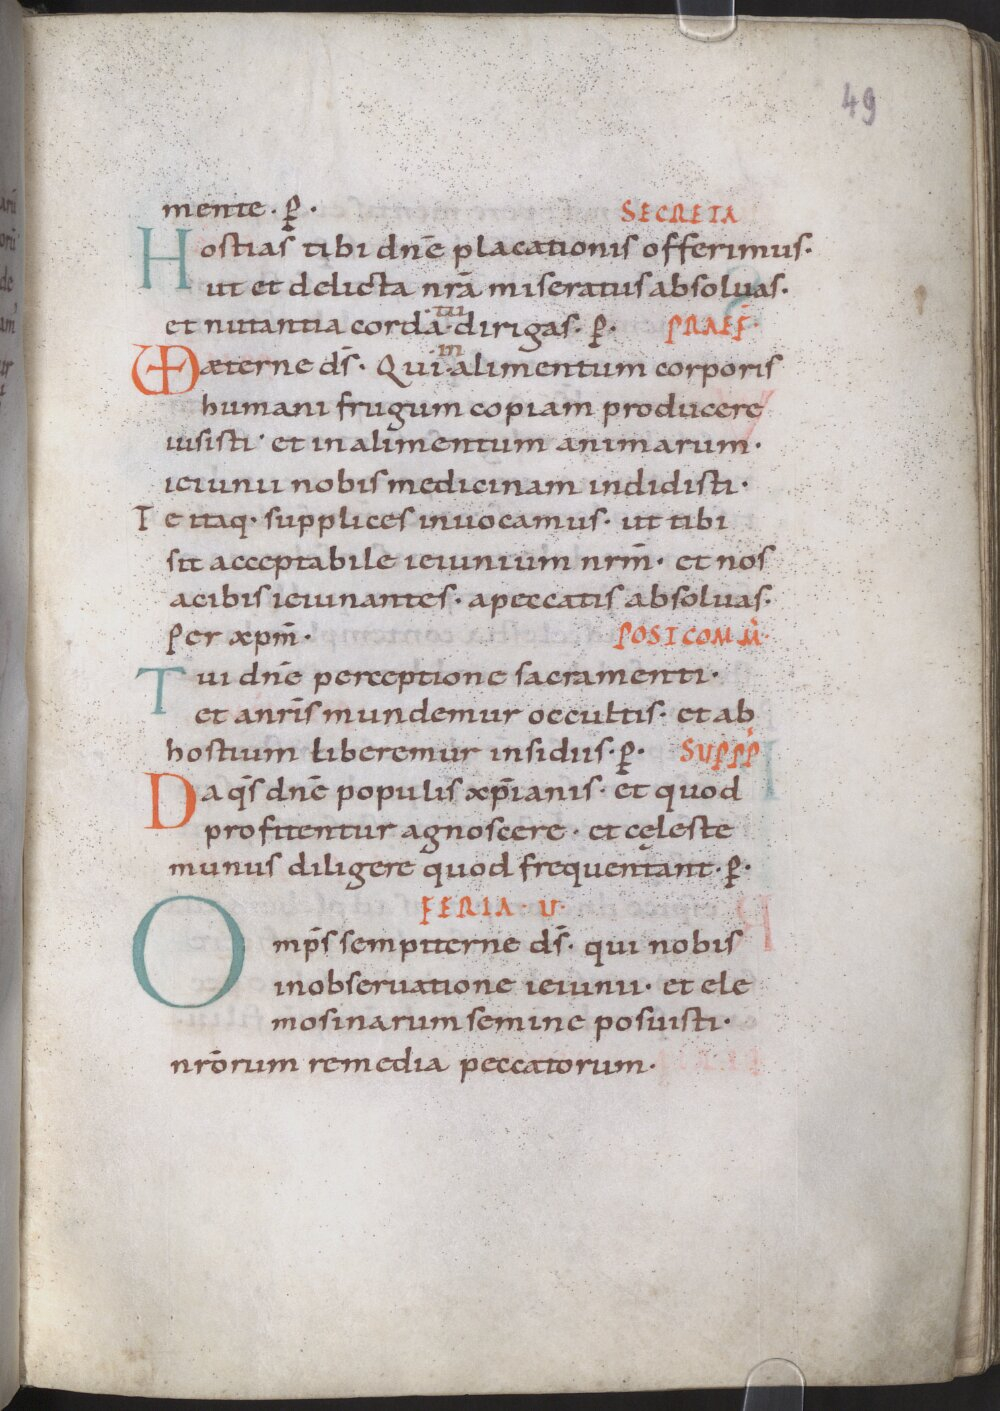 49
mente · ꝑ · SECRETA
Hostias tibi dnē placationis offerimus ·
ut et delicta nrā miseratus absoluas ·
et nutantia corda · tu · dirigas · ꝑ · PRAEF ·
VD aeterne ds̄ · Qui in alimentum corporis
humani frugum copiam producere
iusisti · et in alimentum animarum ·
ieiunii nobis medicinam indidisti ·
Te itaq · supplices inuocamus · ut tibi
sit acceptabile ieiunium nrm̄ · et nos
acibis ieiunantes · apeccatis absoluas ·
Per xpm̄ · POSTCOMM̄ ·
Tui dnē perceptione sacramenti ·
et anrīs mundemur occultis · et ab
hostium liberemur insidiis · ꝑ · SUPPP
Da qs̄ dnē populis xpīanis · et quod
profitentur agnoscere · et cęleste
munus diligere quod frequentant · ꝑ ·
FERIA · V ·
Omps̄ sempiterne ds̄ · qui nobis
inobseruatione ieiunii · et ele
mosinarum semine posuisti ·
nrōrum remedia peccatorum ·